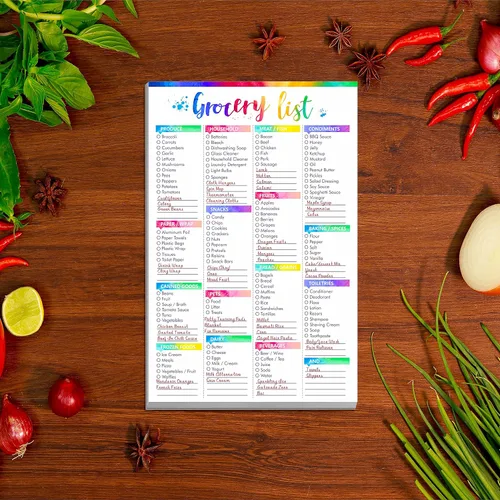 Grocery list
PRODUCE
Broccoli
Carrots
Cucumbers
Garlic
Lettuce
Mushrooms
Onions
Peppers
Potatoes
Tomatoes
Cauliflower
Celery
Green Beans
PAPER / WRAP
Aluminum Foil
Paper Towels
Plastic Bags
Plastic Wrap
Tissues
Toilet Paper
Shrink Wrap
Cling Wrap
CANNED GOODS
Beans
Fruit
Soup / Broth
Tomato Sauce
Tuna
Vegetables
Chicken Biscuit
Roasted Tomato
FROZEN FOODS
Ice Cream
Meats
Pizza
Vegetables / Fruit
Waffles
Mandarin Oranges
French Fries
HOUSEHOLD
Batteries
Bleach
Dishwashing Soap
Glass Cleaner
Household Cleaner
Laundry Detergent
Light Bulbs
Sponges
Cloth Hangers
Thermometer
Cleaning Cloths
SNACKS
Candy
Chips
Cookies
Crackers
Nuts
Popcorn
Pretzels
Raisins
Snack Bars
PETS
Food
Litter
Treats
Potty Training Pads
Blanket
DAIRY
Butter
Cheese
Eggs
Milk / Cream
Yogurt
Milk Alternatives
Sour Cream
MEAT / FISH
Bacon
Beef
Chicken
Fish
Pork
Sausage
Lamb
Mutton
Salmon
FRUITS
Apples
Avocados
Bananas
Berries
Grapes
Melons
Oranges
Dragon Fruits
Cherries
Mangoes
Peaches
BREAD / GRAINS
Bagels
Bread
Cereal
Muffins
Pasta
Rice
Sandwiches
Tortillas
Millet
Basmati Rice
Angel Hair Pasta
BEVERAGES
Beer / Wine
Coffee / Tea
Juice
Soda
Water
Sparkling Ale
Gatorade Zero
CONDIMENTS
BBQ Sauce
Honey
Jelly
Ketchup
Mustard
Oil
Peanut Butter
Pickles
Salad Dressing
Soy Sauce
Spaghetti Sauce
Vinegar
Maple Syrup
Mayonnaise
BAKING / SPICES
Flour
Pepper
Salt
Sugar
Vanilla
Cocoa Powder
TOILETRIES
Conditioner
Deodorant
Floss
Lotion
Razors
Shampoo
Shaving Cream
Soap
Toothpaste
Body/Face Wash
Pain Reliever
AND...
Towels
Slippers